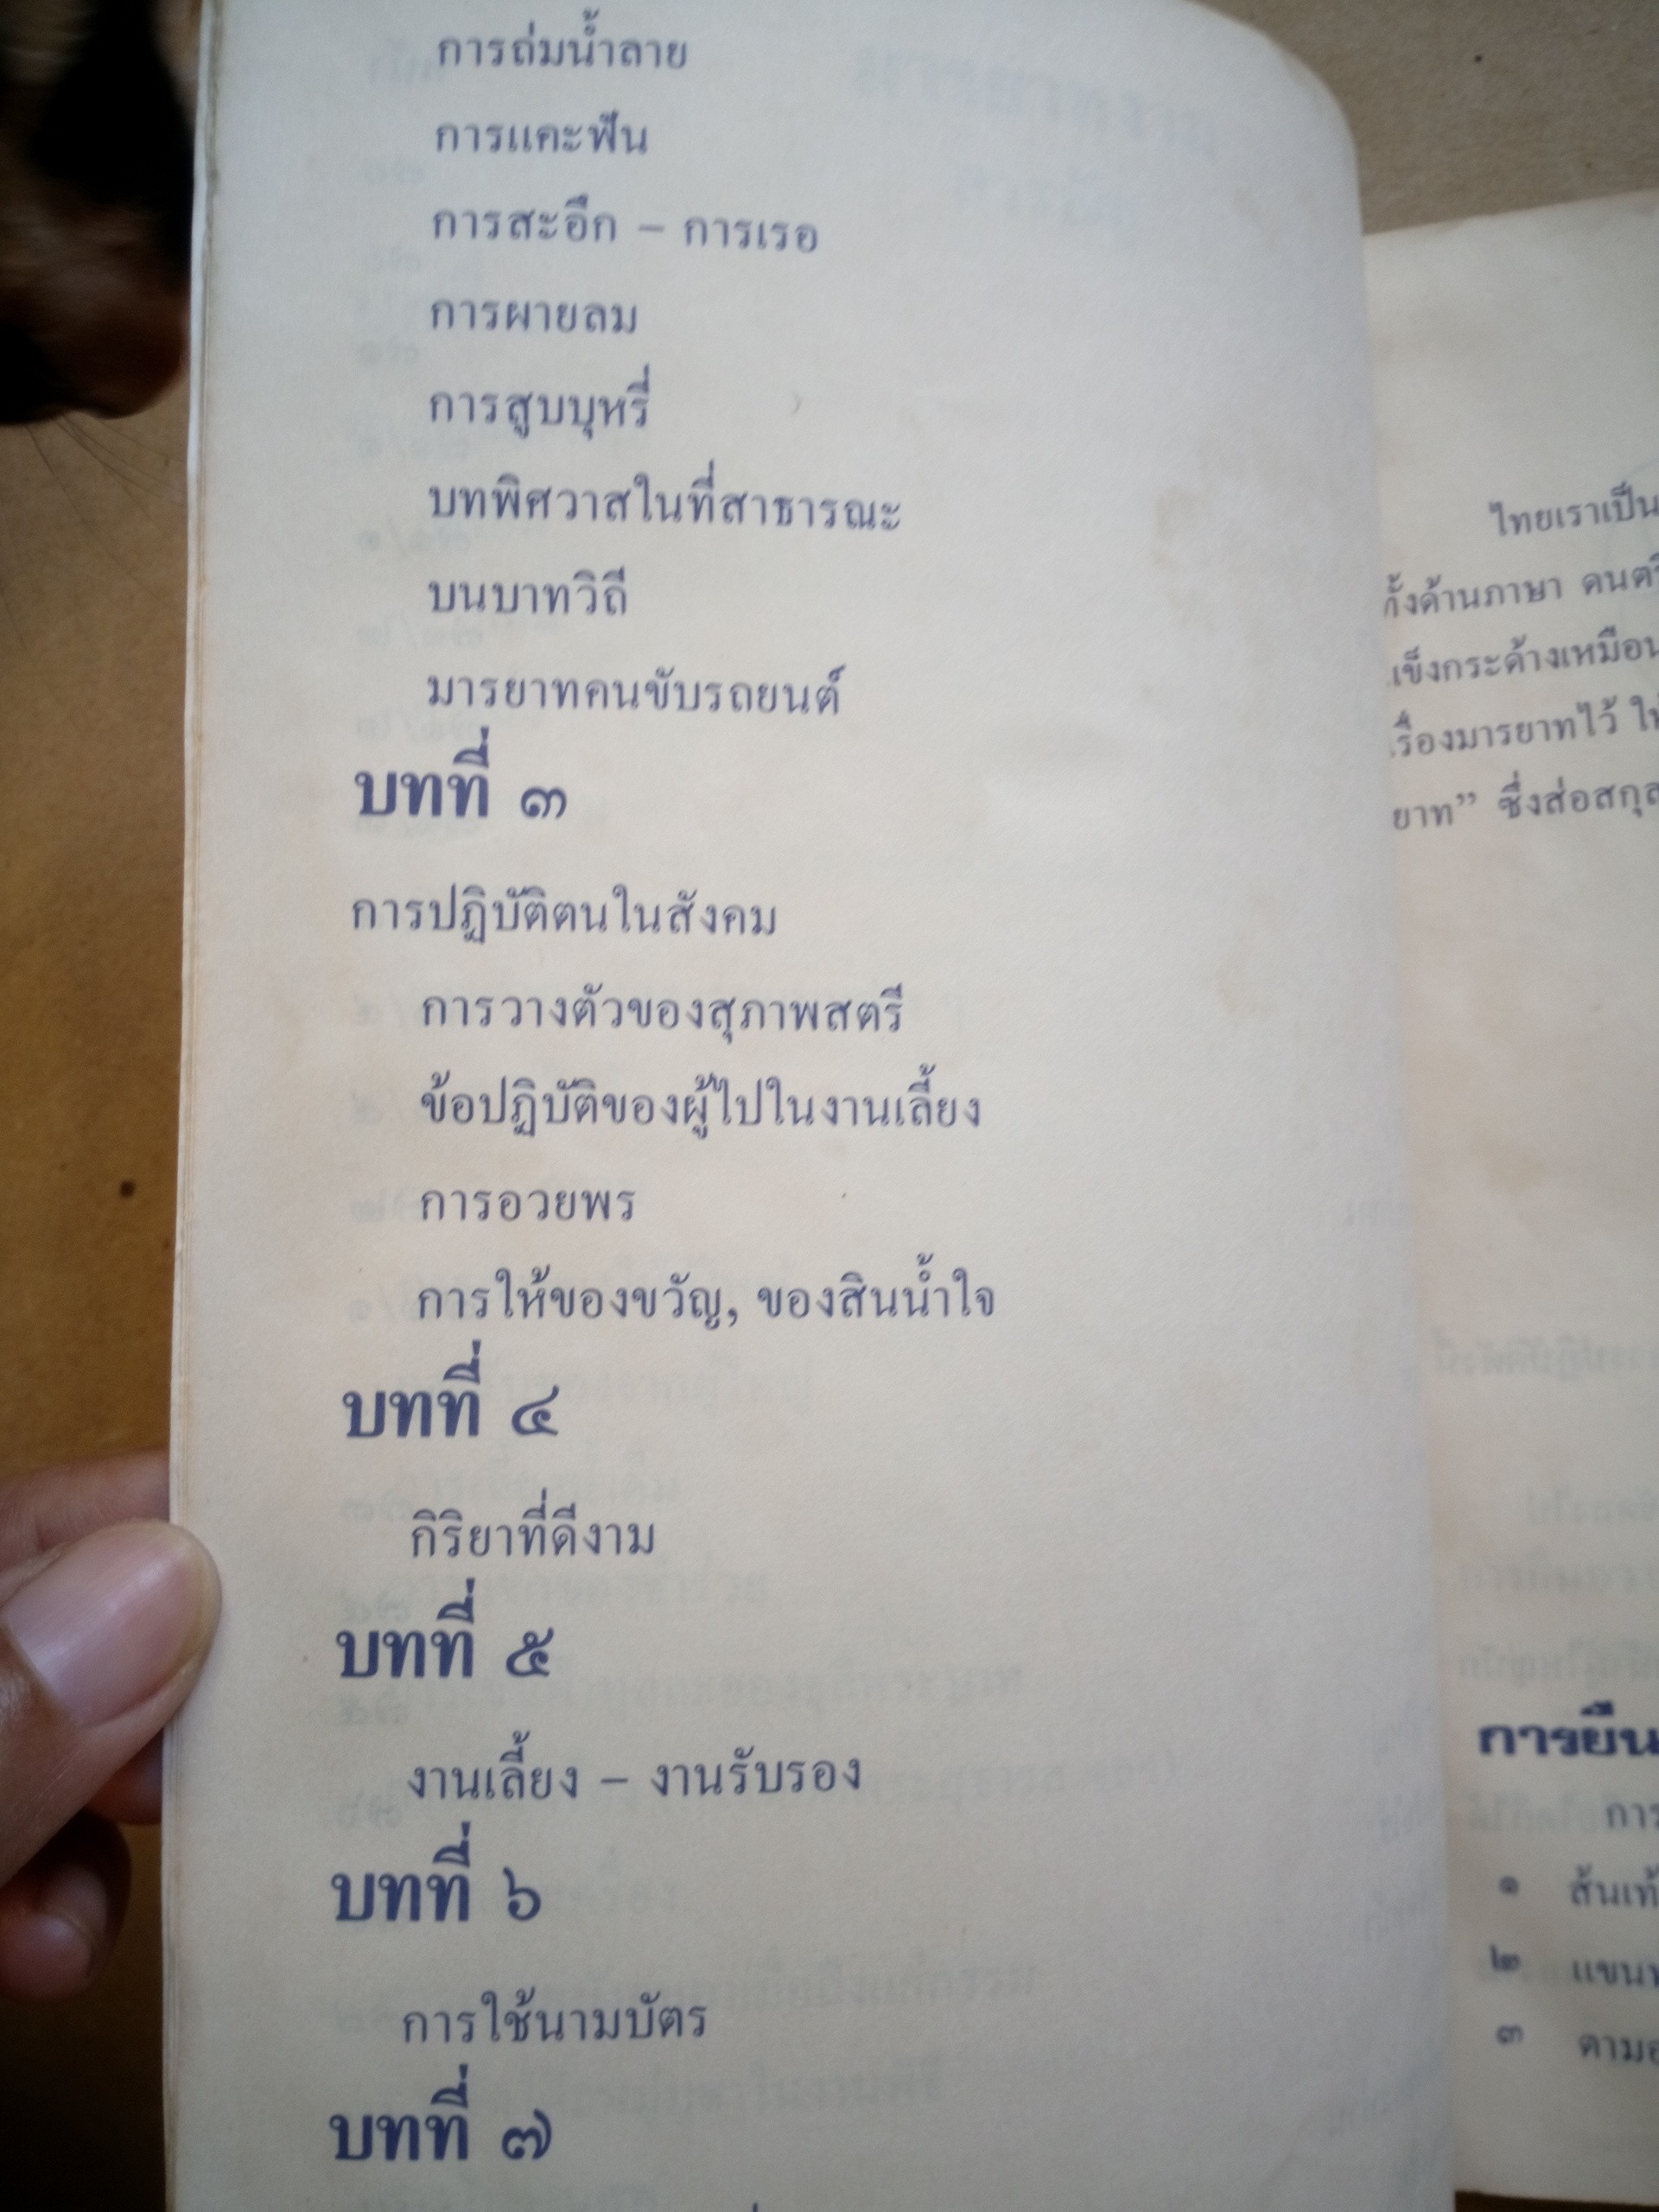 การถ่มน้ำลาย
การแคะฟัน
การสะอึก – การเรอ
การผายลม
การสูบบุหรี่
บทพิศวาสในที่สาธารณะ
บนบาทวิถี
มารยาทคนขับรถยนต์
บทที่ ๓
การปฏิบัติตนในสังคม
การวางตัวของสุภาพสตรี
ข้อปฏิบัติของผู้ไปในงานเลี้ยง
การอวยพร
การให้ของขวัญ, ของสินน้ำใจ
บทที่ ๔
กิริยาที่ดีงาม
บทที่ ๕
งานเลี้ยง – งานรับรอง
บทที่ ๖
การใช้นามบัตร
บทที่ ๗
ไทยเราเป็น
ด้านภาษา
กระด้างเหมือน
มารยาทไว้
ยาท” ซึ่งส่อสกุล
การยืน
การ
๑ ส้นเท้
๒ แขน
๓ ตาม